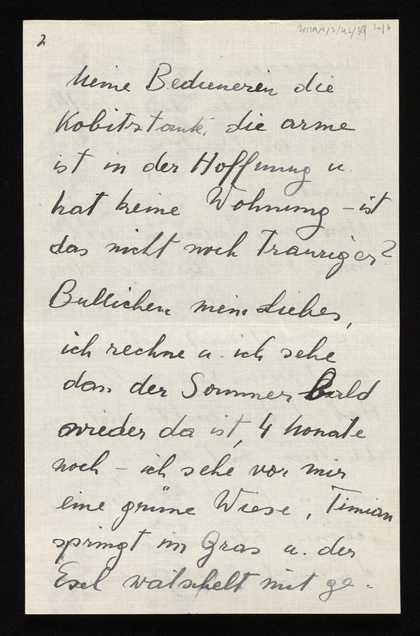 2
Meine Bedienerin die
Kobitstank, die arme
ist in der Hoffnung u.
hat keine Wohnung – ist
das nicht noch Trauriger?
Bullichen mein Liebes,
ich rechne u. ich sehe
dass der Sommer Bald
wieder da ist, 4 Monate
noch – ich sehe vor mir
eine grüne Wiese, Timian
springt im Gras u. der
Esel watschelt mit ge-